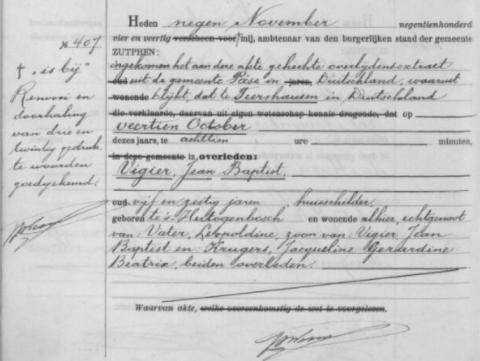 Heden negen November negentienhonderd
vier en veertig verscheen voor mij, ambtenaar van den burgerlijken stand der gemeente
ZUTPHEN:
ingekomen het aan deze akte gehechte overlijdensextract
uit de gemeente in jaren, Duitschland, waaruit
wonende blijkt, dat te Teershausen in Duitschland
die verklaarde, daarvan uit eigen wetenschap kennis dragende, dat op
veertien October
dezes jaars, te achttien ure minuten,
in deze gemeente is overleden:
Vigier, Jean Baptist,
oud vijf en zestig jaren, huisschilder,
geboren te 's Hertogenbosch en wonende alhier, echtgenoot
van Vater, Leopoldine, zoon van Vigier, Jean
Baptist en Krugers, Jacqueline Gerardine
Beatrix, beiden overleden.
Waarvan akte, welke overeenkomstig de wet is voorgelezen.
No 407
† „is bij"
Renvooi en
doorhaling
van drie en
twintig gedruk-
te woorden
goedgekeurd.